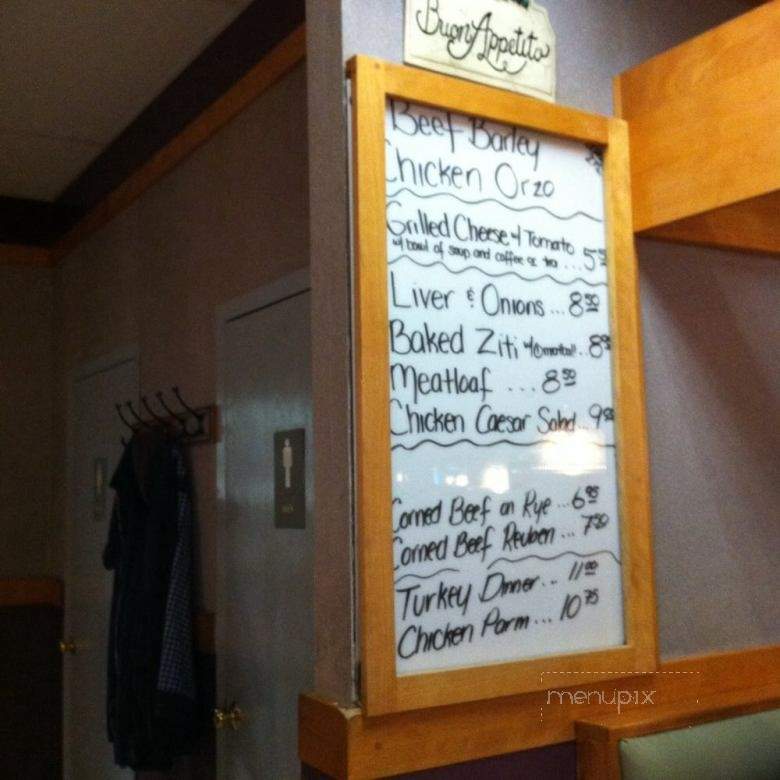 Buon Appetito
Beef Barley
Chicken Orzo
Grilled Cheese w/ Tomato
w/ bowl of soup and coffee or tea ... 5
Liver & Onions ... 8 50
Baked Ziti w/ meatball .. 8
Meatloaf ... 8 50
Chicken Caesar Salad .. 9
Corned Beef on Rye ... 6 95
Corned Beef Reuben ... 7 50
Turkey Dinner ... 11 00
Chicken Parm ... 10 75
menupix